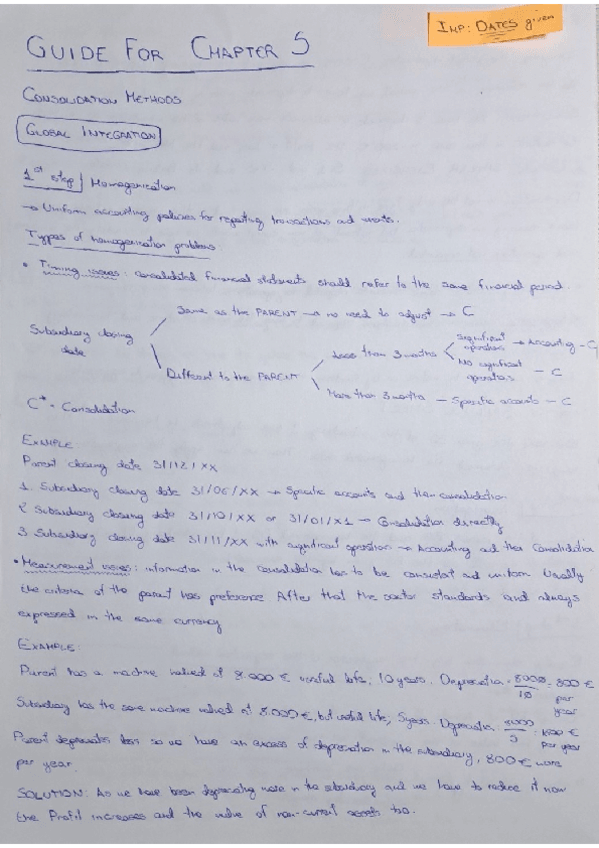 IMP: DATES given
GUIDE FOR CHAPTER 5
CONSOLIDATION METHODS
GLOBAL INTEGRATION
1st step | Homogenization
→ Uniform accounting policies for reporting transactions and events.
Types of homogenization problems
• Timing issues: consolidated financial statements should refer to the same financial period.
Same as the PARENT → no need to adjust → C
Subsidiary closing date
Different to the PARENT
Less than 3 months
Significant operations → Accounting - C
No significant operations - C
More than 3 months - Specific accounts - C
C* = Consolidation
EXAMPLE:
Parent closing date 31/12/XX
1. Subsidiary closing date 31/06/XX → Specific accounts and then consolidation
2 Subsidiary closing date 31/10/XX or 31/01/X1 → Consolidation directly
3 Subsidiary closing date 31/11/XX with significant operation → Accounting and then Consolidation
• Measurement issues: information in the consolidation has to be consistent and uniform Usually
the criteria of the parent has preference After that the sector standards and always
expressed in the same currency
EXAMPLE:
Parent has a machine valued at 8.000 € useful life, 10 years. Depreciation = 8000/10 = 800 € per year
Subsidiary has the same machine valued at 8.000 €, but useful life, 5 years. Depreciation = 8000/5 = € per year
Parent depreciates less so we have an excess of depreciation in the subsidiary, 800 € more
per year.
SOLUTION: As we have been depreciating more in the subsidiary and we have to reduce it now
the Profit increases and the value of non-current assets too.